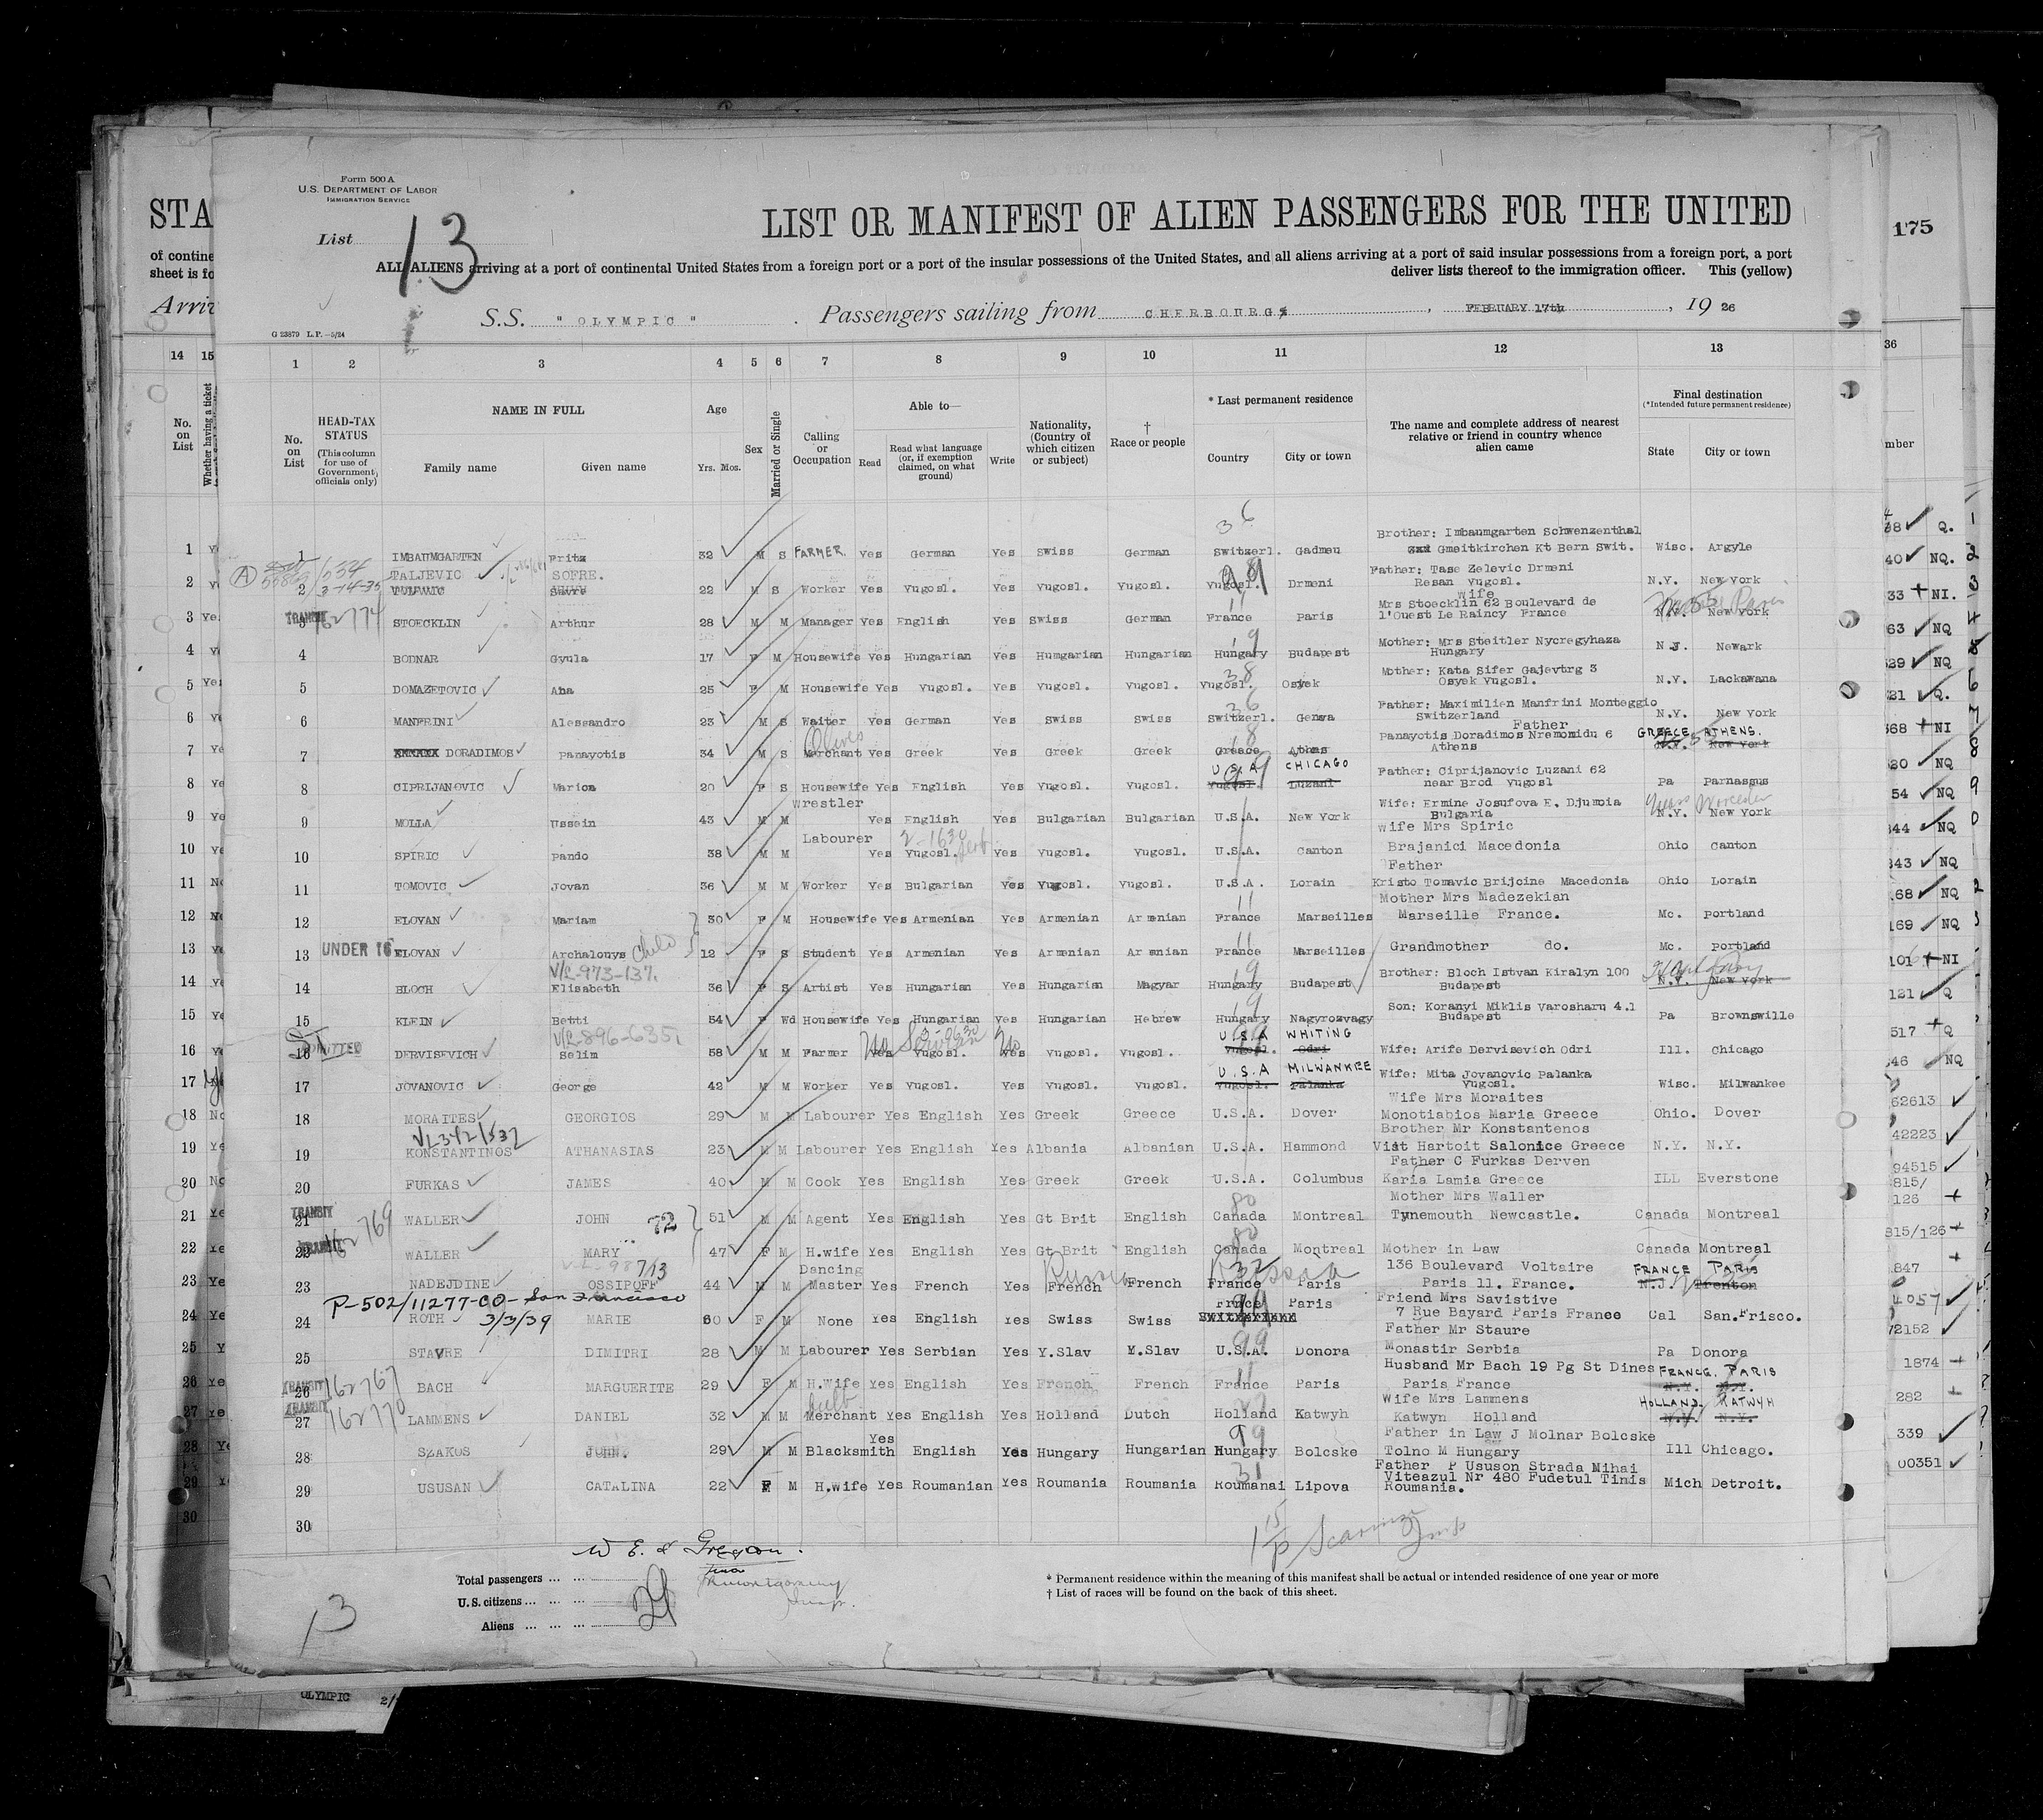 Form 500 A
U.S. DEPARTMENT OF LABOR
IMMIGRATION SERVICE
STA
LIST OR MANIFEST OF ALIEN PASSENGERS FOR THE UNITED
175
List 13
of contine
sheet is fo
ALL ALIENS arriving at a port of continental United States from a foreign port or a port of the insular possessions of the United States, and all aliens arriving at a port of said insular possessions from a foreign port, a port
deliver lists thereof to the immigration officer. This (yellow)
Arriv
S.S. " OLYMPIC " . Passengers sailing from CHERBOURG , FEBRUARY 17th , 19 26
G 23879 L.P.—5/24
14 15 1 2 3 4 5 6 7 8 9 10 11 12 13 36
No. on List
Whether having a ticket
No. on List
HEAD-TAX STATUS
(This column for use of Government officials only)
NAME IN FULL
Family name
Given name
Age
Yrs. Mos.
Sex
Married or Single
Calling or Occupation
Able to—
Read
Read what language (or, if exemption claimed, on what ground)
Write
Nationality, (Country of which citizen or subject)
† Race or people
* Last permanent residence
Country
City or town
The name and complete address of nearest relative or friend in country whence alien came
Final destination
(*Intended future permanent residence)
State
City or town
mber
Brother: Imbaumgarten Schwenzenthal
1 IMBAUMGARTEN Fritz 32 M S FARMER. Yes German Yes Swiss German Switzerl. Gadmen Gmeitkirchen Kt Bern Swit. Wisc. Argyle
TALJEVIC SOFRE. Father: Tase Zelevic Drmeni
2 Savre 22 M S Worker Yes Yugosl. Yes Yugosl. Yugosl. Yugosl. Drmeni Resan Yugosl. N.Y. New York
3-14-35
Wife
Mrs Stoecklin 62 Boulevard de
TRANSIT 162774 3 STOECKLIN Arthur 28 M M Manager Yes English Yes Swiss German France Paris l'Ouest Le Raincy France N.Y. New York
Mother: Mrs Steitler Nycregyhaza
4 BODNAR Gyula 17 F M Housewife Yes Hungarian Yes Humgarian Hungarian Hungary Budapest Hungary N.J. Newark
Mother: Kata Sifer Gajevtrg 3
5 DOMAZETOVIC Ana 25 F M Housewife Yes Yugosl. Yes Yugosl. Yugosl. Yugosl. Osyek Osyek Yugosl. N.Y. Lackawana
Father: Maximilien Manfrini Monteggio
6 MANFRINI Alessandro 23 M S Waiter Yes German Yes Swiss Swiss Switzerl. Geneva Switzerland N.Y. New York
Father
Olives Panayotis Doradimos Nremomidu 6 GREECE ATHENS.
7 DORADIMOS Panayotis 34 M S Merchant Yes Greek Yes Greek Greek Greece Athens Athens N.Y. New York
U.S.A CHICAGO Father: Ciprijanovic Luzani 62
8 CIPRIJANOVIC Marica 20 F S Housewife Yes English Yes Yugosl. Yugosl. Yugosl. Luzani near Brod Yugosl Pa Parnassus
Wrestler Wife: Ermine Josufova E. Djumoia Worcester
9 MOLLA Ussein 43 M M Yes English Yes Bulgarian Bulgarian U.S.A. New York Bulgaria N.Y. New York
Labourer 2-1630 Wife Mrs Spiric
10 SPIRIC Pando 38 M M Yes Yugosl. Yes Yugosl. Yugosl. U.S.A. Canton Brajanici Macedonia Ohio Canton
Father
11 TOMOVIC Jovan 36 M M Worker Yes Bulgarian Yes Yugosl. Yugosl. U.S.A. Lorain Kristo Tomavic Brijcine Macedonia Ohio Lorain
Mother Mrs Madezekian
12 ELOVAN Mariam 30 F M Housewife Yes Armenian Yes Armenian Armenian France Marseilles Marseille France. Mc. Portland
UNDER 16 13 ELOVAN Archalouys Child 12 F S Student Yes Armenian Yes Armenian Armenian France Marseilles Grandmother do. Mc. Portland
V/L-973-137. Brother: Bloch Istvan Kiralyn 100
14 BLOCH Elisabeth 36 F S Artist Yes Hungarian Yes Hungarian Magyar Hungary Budapest Budapest N.Y. New York
Son: Koranyi Miklis Varosharu 4.1
15 KLEIN Betti 54 F Wd Housewife Yes Hungarian Yes Hungarian Hebrew Hungary Nagyrozvagy Budapest Pa Brownsville
V/L-896-635. U.S.A WHITING
ADMITTED 16 DERVISEVICH Selim 58 M M Farmer No Yes Yugosl. No Yes Yugosl. Yugosl. Yugosl. Odri Wife: Arife Dervisevich Odri Ill. Chicago
U.S.A MILWANKEE Wife: Mita Jovanovic Palanka
17 JOVANOVIC George 42 M M Worker Yes Yugosl. Yes Yugosl. Yugosl. Yugosl. Palanka Yugosl. Wisc. Milwankee
Wife Mrs Moraites
18 MORAITES GEORGIOS 29 M M Labourer Yes English Yes Greek Greece U.S.A. Dover Monotiabios Maria Greece Ohio. Dover
Brother Mr Konstantenos
19 KONSTANTINOS ATHANASIAS 23 M M Labourer Yes English Yes Albania Albanian U.S.A. Hammond Vist Hartoit Salonice Greece N.Y. N.Y.
Father C Furkas Derven
20 FURKAS JAMES 40 M M Cook Yes English Yes Greek Greek U.S.A. Columbus Karia Lamia Greece ILL Everstone
Mother Mrs Waller
TRANSIT 162769 21 WALLER JOHN 72 51 M M Agent Yes English Yes Gt Brit English Canada Montreal Tynemouth Newcastle. Canada Montreal
TRANSIT 22 WALLER MARY 47 F M H.wife Yes English Yes Gt Brit English Canada Montreal Mother in Law Canada Montreal
Dancing Russia Russia 136 Boulevard Voltaire FRANCE PARIS
23 NADEJDINE OSSIPOFF 44 M M Master Yes French Yes French French France Paris Paris 11. France. N.J. Trenton
P-502/11277-CO- San Francisco France Paris Friend Mrs Savistive
24 ROTH 3/3/39 MARIE 60 F M None Yes English Yes Swiss Swiss 7 Rue Bayard Paris France Cal San.Frisco.
Father Mr Staure
25 STAVRE DIMITRI 28 M M Labourer Yes Serbian Yes Y.Slav Y.Slav U.S.A. Donora Monastir Serbia Pa Donora
Husband Mr Bach 19 Pg St Dines FRANCE. PARIS
TRANSIT 162767 26 BACH MARGUERITE 29 F M H.Wife Yes English Yes French French France Paris Paris France N.Y. N.Y.
Bulb Wife Mrs Lammens HOLLAND. KATWYH
TRANSIT 162770 27 LAMMENS DANIEL 32 M M Merchant Yes English Yes Holland Dutch Holland Katwyh Katwyn Holland N.Y. N.Y.
Father in Law J Molnar Bolcske
28 SZAKOS JOHN. 29 M M Blacksmith Yes English Yes Hungary Hungarian Hungary Bolcske Tolno M Hungary Ill Chicago.
Father P Ususon Strada Mihai
Viteazul Nr 480 Fudetul Timis
29 USUSAN CATALINA 22 F M H.wife Yes Roumanian Yes Roumania Roumania Roumanai Lipova Roumania. Mich Detroit.
30
Total passengers
U.S. citizens
Aliens
29
13
* Permanent residence within the meaning of this manifest shall be actual or intended residence of one year or more
† List of races will be found on the back of this sheet.
OLYMPIC